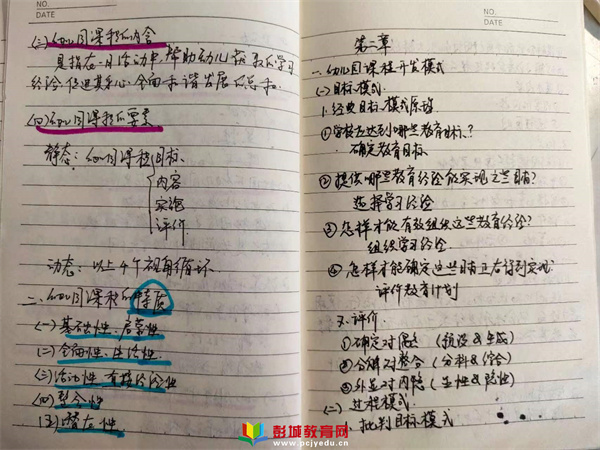 NO.
DATE
(三)幼儿园课程的内含
是指在一日活动中,帮助幼儿获取学习
经验,促进其身心全面和谐发展的总和.
(四)幼儿园课程的要素
静态:幼儿园课程目标
内容
实施
评价.
动态:以上4个视角循环.
二、幼儿园课程的特质
(一)基础性、启蒙性
(二)全面性、生活性.
(三)活动性 直接经验性
(四)整合性
(五)潜在性.
NO.
DATE
第二章
一、幼儿园课程开发模式
(一)目标模式.
1.经典目标模式原理
①学校应达到哪些教育目标?
确定教育目标
②提供哪些教育经验能实现这些目标?
选择学习经验
③怎样才能有效组织这些教育经验?
组织学习经验
④怎样才能确定这些目标正在得到实现
评价教育计划
评价.
①确定对 (预设&生成)
②分解对整合 (分科&综合)
③外显对内隐 (显性&隐性)
(二)过程模式.
批判目标模式
彭城教育网
www.pcjyedu.cn